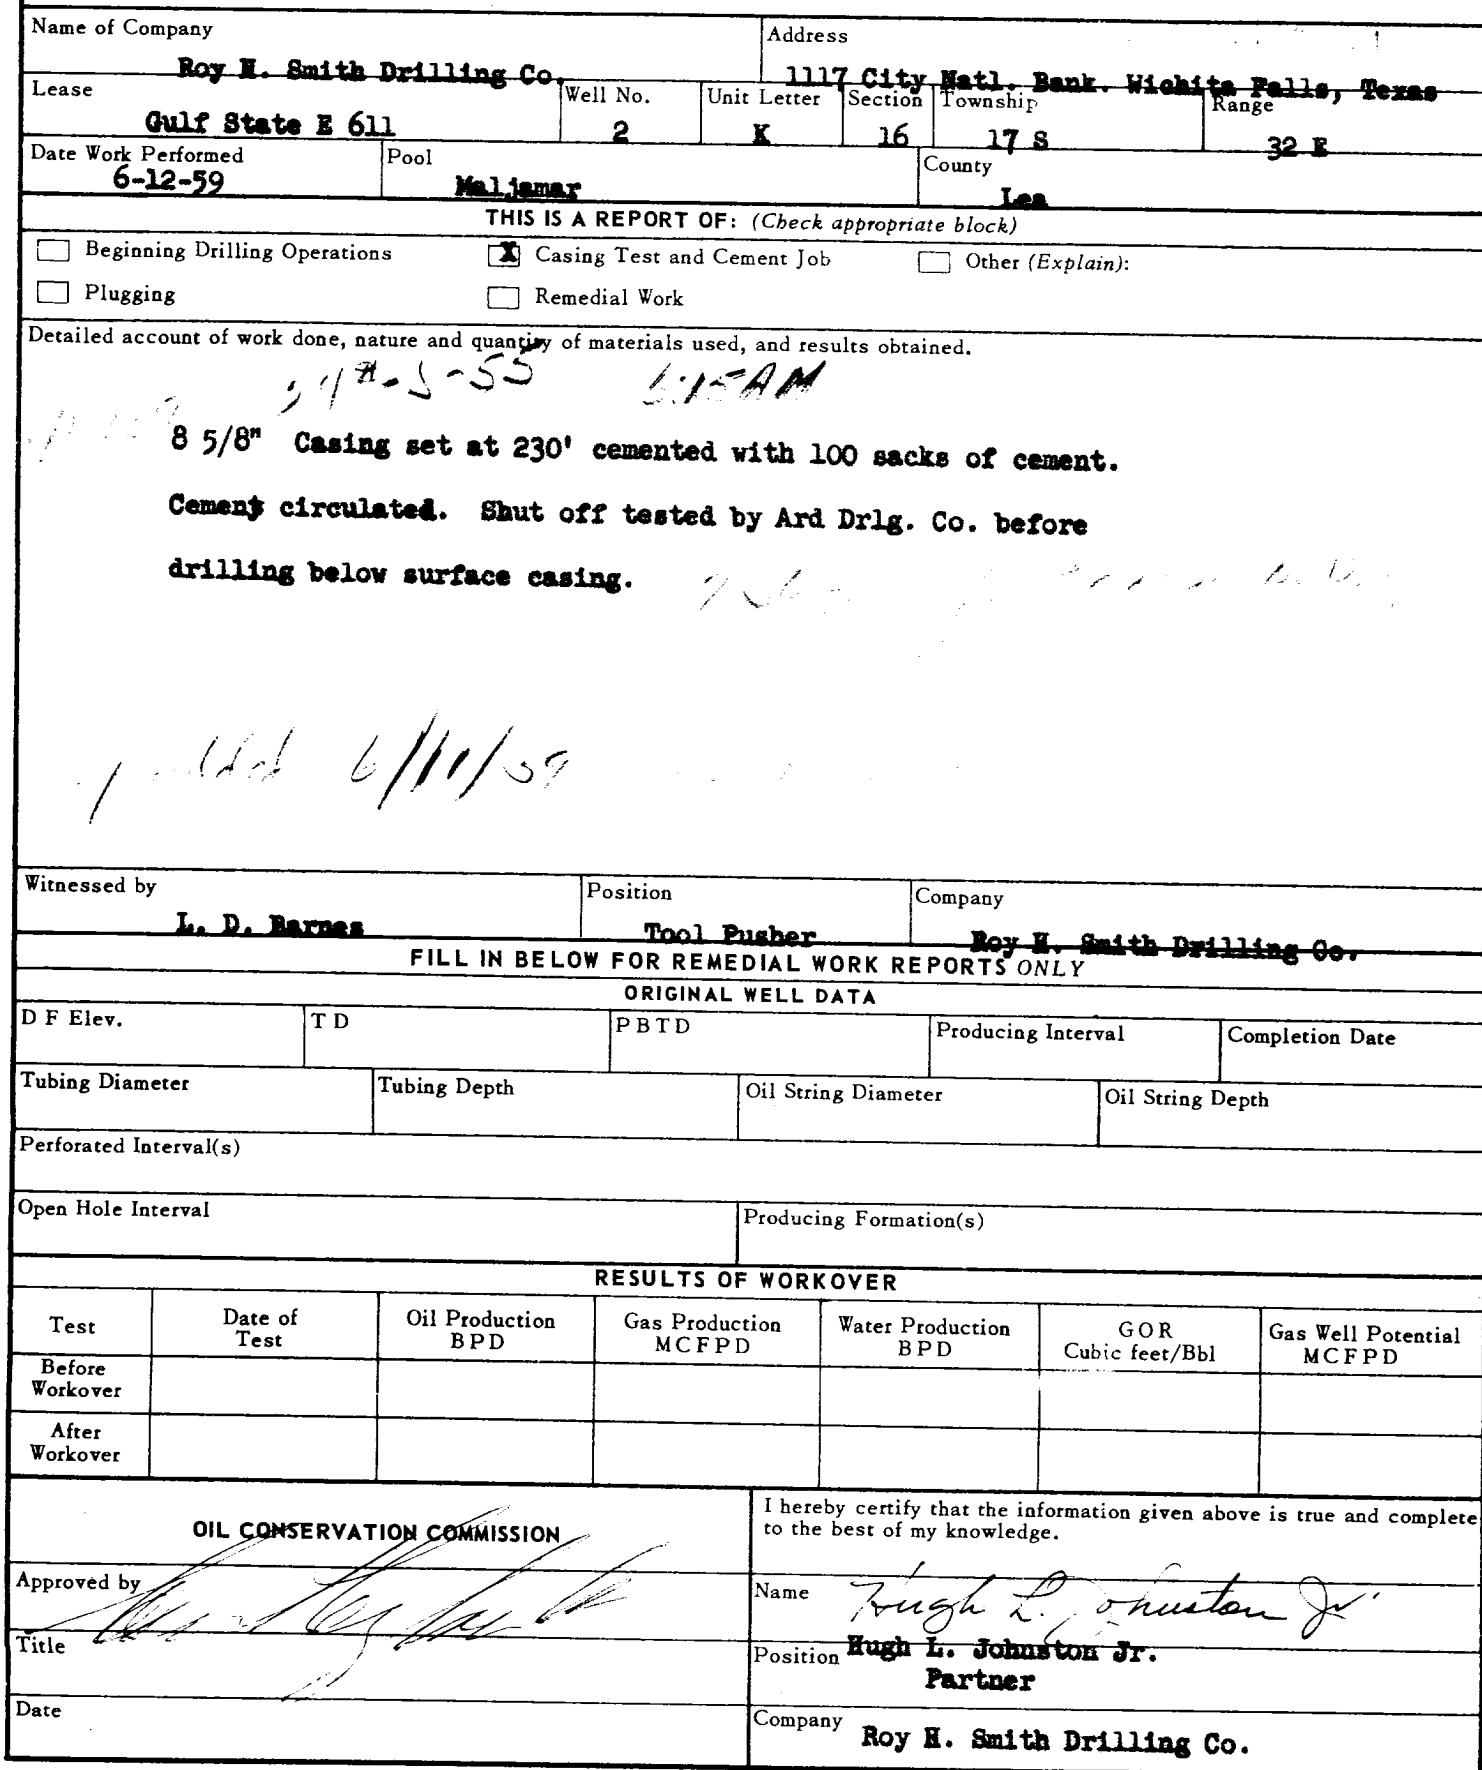 Name of Company
Address
Roy H. Smith Drilling Co.
1117 City Natl. Bank. Wichita Falls, Texas
Lease
Well No.
Unit Letter
Section
Township
Range
Gulf State E 611
2
K
16
17 S
32 E
Date Work Performed
Pool
County
6-12-59
Maljamar
Lea
THIS IS A REPORT OF: (Check appropriate block)
Beginning Drilling Operations
X Casing Test and Cement Job
Other (Explain):
Plugging
Remedial Work
Detailed account of work done, nature and quantity of materials used, and results obtained.
:15 AM
8 5/8" Casing set at 230' cemented with 100 sacks of cement.
Cement circulated. Shut off tested by Ard Drlg. Co. before
drilling below surface casing.
6/11/59
Witnessed by
Position
Company
L. D. Barnes
Tool Pusher
Roy H. Smith Drilling Co.
FILL IN BELOW FOR REMEDIAL WORK REPORTS ONLY
ORIGINAL WELL DATA
D F Elev.
T D
P B T D
Producing Interval
Completion Date
Tubing Diameter
Tubing Depth
Oil String Diameter
Oil String Depth
Perforated Interval(s)
Open Hole Interval
Producing Formation(s)
RESULTS OF WORKOVER
Test
Date of Test
Oil Production BPD
Gas Production MCFPD
Water Production BPD
GOR Cubic feet/Bbl
Gas Well Potential MCFPD
Before Workover
After Workover
OIL CONSERVATION COMMISSION
I hereby certify that the information given above is true and complete
to the best of my knowledge.
Approved by
Name
Hugh L. Johnston Jr.
Title
Position
Hugh L. Johnston Jr.
Partner
Date
Company
Roy H. Smith Drilling Co.